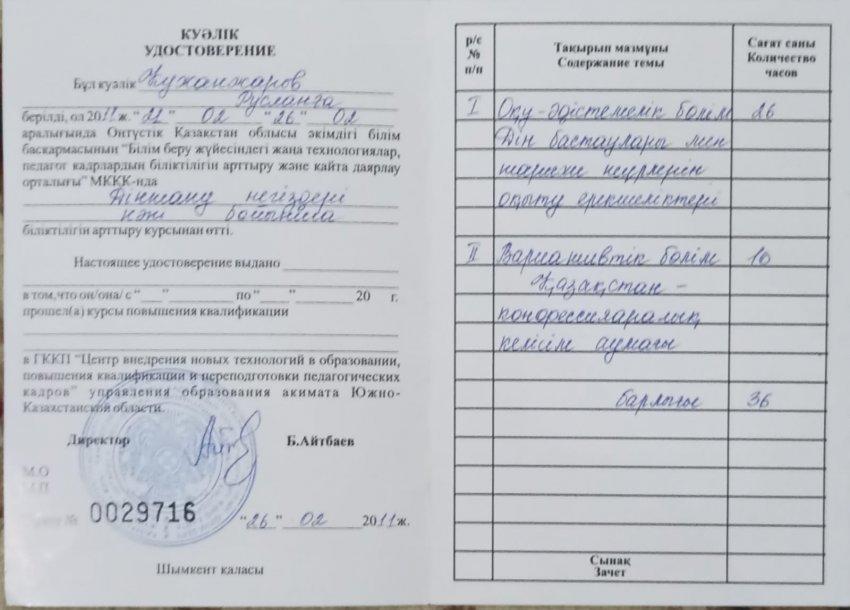 КУӘЛІК
УДОСТОВЕРЕНИЕ
Бұл куәлік Кужанжаров
Русланға
берілді, ол 2011 ж. "21" 02 "26" 02
аралығында Оңтүстік Қазақстан облысы әкімдігі білім
басқармасының "Білім беру жүйесіндегі жаңа технологиялар,
педагог кадрлардың біліктілігін арттыру және қайта даярлау
орталығы" МКҚК-нда
Дінтану негіздері
пәні бойынша
біліктілігін арттыру курсынан өтті.
Настоящее удостоверение выдано
в том, что он/она/ с "___" по "___" 20 г.
прошел(а) курсы повышения квалификации
в ГККП "Центр внедрения новых технологий в образовании,
повышения квалификации и переподготовки педагогических
кадров" управления образования акимата Южно-
Казахстанской области.
Директор Б.Айтбаев
М.О
М.П
№ 0029716 "26" 02 2011 ж.
Шымкент қаласы
р/с
№
п/п
Тақырып мазмұны
Содержание темы
Сағат саны
Количество
часов
I Оқу-әдістемелік бөлім 26
Дін бастаулары мен
тарихи
оқыту ерекшеліктері
II Вариативтік бөлім 10
Қазақстан –
конфессияаралық
келісім аумағы
барлығы 36
Сынақ
Зачет